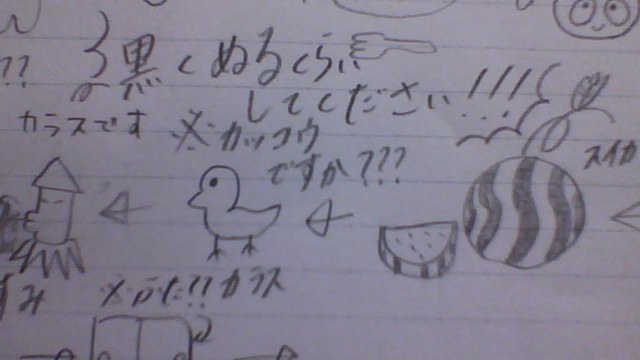 黒くぬるくらい
??
してください!!!
カラスです
※カッコウ
ですか???
スイカ
み
カラス